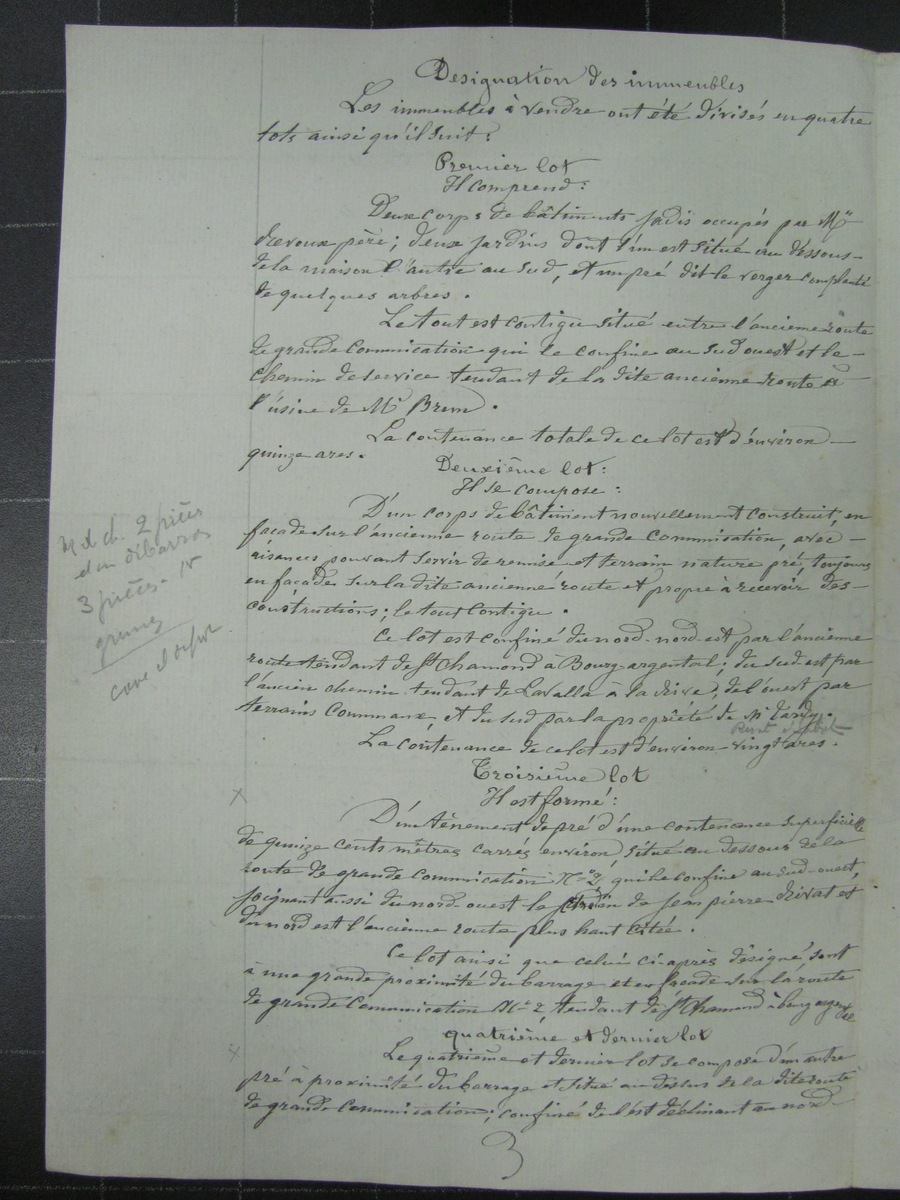 Designation des immeubles
Les immeubles à vendre ont été divisés en quatre
lots ainsi qu'il suit :
Premier lot
Il comprend :
Deux corps de bâtiments jadis occupés par Mr
père ; deux jardins dont l'un est situé au dessous
de la maison l'autre au sud, et un pré dit le verger complanté
de quelques arbres .
Le tout est contigu situé entre l'ancienne route
de grande communication qui le confine au sud ouest et le
chemin de service tendant de la dite ancienne route à
l'usine de Mr
La contenance totale de ce lot est d'environ
quinze ares .
Deuxième lot :
Il se compose :
D'un corps de bâtiment nouvellement construit, en
façade sur l'ancienne route de grande communication, avec
aisances pouvant servir de remise et terrain nature pré, toujours
en façade sur la dite ancienne route et propre à recevoir des
constructions ; le tout contigu .
Ce lot est confiné du nord-nord est par l'ancienne
route tendant de St Chamond à Bourg-argental ; du sud est par
l'ancien chemin tendant de Lavalla à la Rive, de l'ouest par
terrains communaux, et du sud par la propriété de Mr Tardy.
La contenance de ce lot est d'environ vingt ares .
2 pièces
3 pièces
cave
Troisième lot
Il est formé :
D'un tènement de pré d'une contenance superficielle
de quinze cents mètres carrés environ situé au dessous de la
route de grande communication No 2, qui le confine au sud-ouest,
joignant aussi du nord-ouest le de Jean pierre Rivat et
du nord est l'ancienne route plus haut citée .
Ce lot ainsi que celui ci-après désigné, sont
à une grande proximité du barrage et en façade sur la route
de grande communication No 2, tendant de St Chamond à bourg argental
quatrième et dernier lot
Le quatrième et dernier lot se compose d'un autre
pré à proximité du barrage et situé au dessus de la dite route
de grande communication ; confiné de l'est déclinant au nord